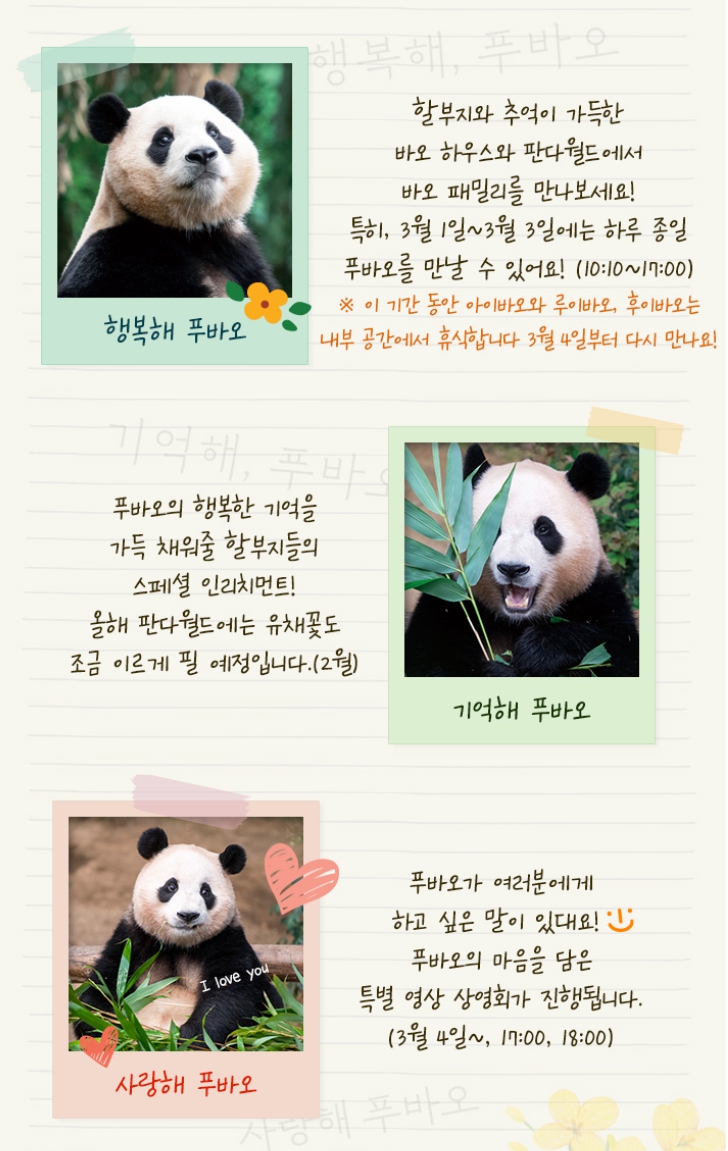 행복해, 푸바오
할부지와 추억이 가득한
바오 하우스와 판다월드에서
바오 패밀리를 만나보세요!
특히, 3월 1일~3월 3일에는 하루 종일
푸바오를 만날 수 있어요! (10:10~17:00)
※ 이 기간 동안 아이바오와 루이바오, 후이바오는
내부 공간에서 휴식합니다 3월 4일부터 다시 만나요!
행복해 푸바오
기억해, 푸바오
푸바오의 행복한 기억을
가득 채워줄 할부지들의
스페셜 인리치먼트!
올해 판다월드에는 유채꽃도
조금 이르게 필 예정입니다.(2월)
기억해 푸바오
푸바오가 여러분에게
하고 싶은 말이 있대요!
푸바오의 마음을 담은
특별 영상 상영회가 진행됩니다.
(3월 4일~, 17:00, 18:00)
I love you
사랑해 푸바오
사랑해 푸바오